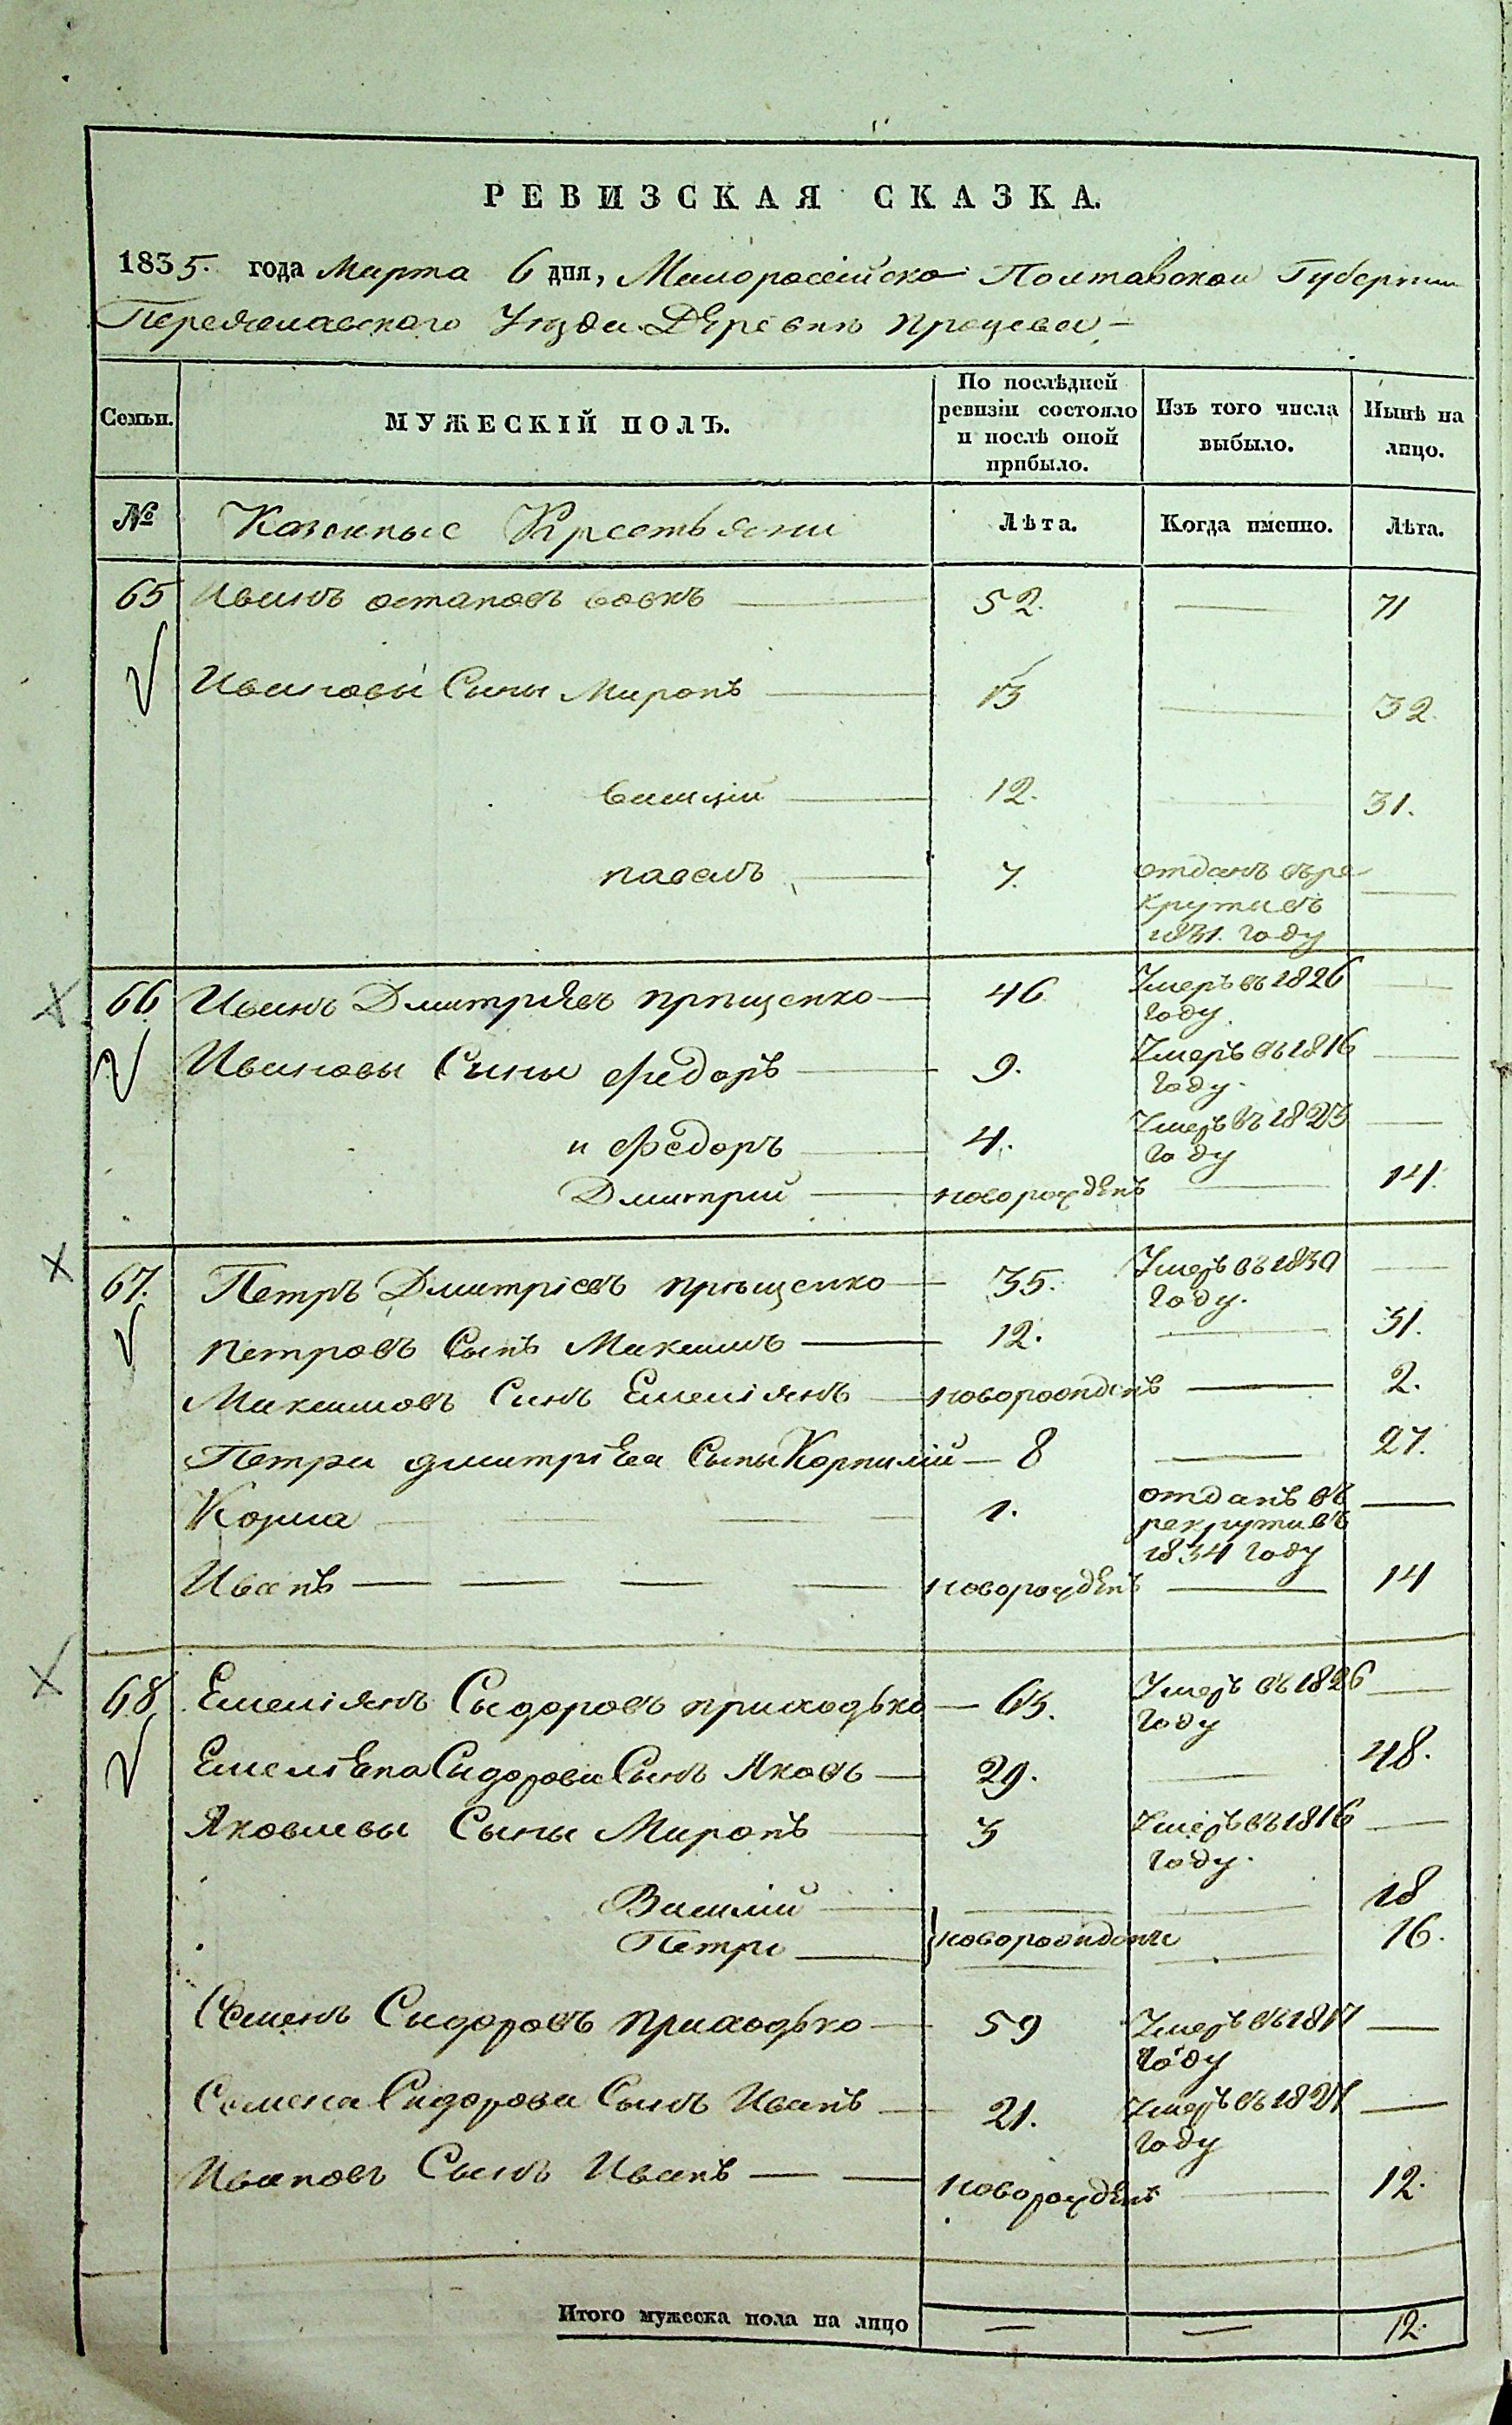 РЕВИЗСКАЯ СКАЗКА.
1835. года Марта 6 дня, Малоросейско Полтавской Губернии
Переяславского Уезда Деревни Процева
Семьи.
МУЖЕСКІЙ ПОЛЪ.
По послѣдней ревизіи состояло и послѣ оной прибыло.
Изъ того числа выбыло.
Нынѣ на лицо.
№ Казенные Крестьяни Лѣта. Когда именно. Лѣта.
65 Иванъ остаповъ вовкъ 52. 71
Ивановы Сыны Миронъ 13 32.
василій 12. 31.
павелъ 7. отданъ въре
крутывъ
1831. году
66 Иванъ Дмитріевъ прищенко 46 Умеръ въ 1826
году.
Ивановы Сыны Федоръ 9. Умеръ въ 1816
году.
и Федоръ 4. Умеръ въ 1823
году
Дмитрий новорожденъ 14.
67. Петръ Дмитріевъ прыщенко 35. Умеръ въ 1830
году.
петровъ Сынъ Максимъ 12. 31.
Максимовъ Синъ Емеліянъ новорожденъ 2.
Петра дмитріева Сыны Корнилій 8 27.
Козма 1. отданъ въ
рекрутывъ
1834 году
Иванъ новорожденъ 14
68 Емеліянъ Сыдоровъ приходько 63. Умеръ въ 1826
году
Емеліяна Сидорова Сынъ Яковъ 29. 48.
Яковлевы Сыны Миронъ 3 Умеръ въ 1816
году.
Василій 18
Петръ новорожденни 16.
Семенъ Сыдоровъ приходько 59 Умеръ въ 1817
году
Семена Сидорова Сынъ Иванъ 21. Умеръ въ 1827
году
Ивановъ Сынъ Иванъ новорожденъ 12.
Итого мужеска пола на лицо 12.